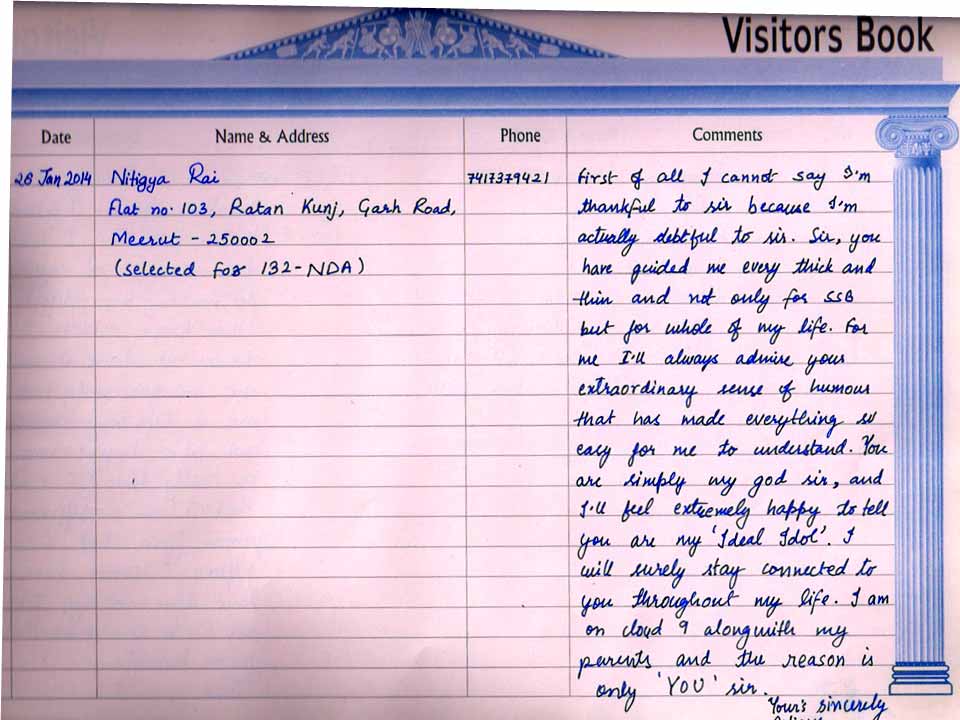 Visitors Book
Date Name & Address Phone Comments
26 Jan 2014 Nitigya Rai 7417379421 First of all I cannot say I'm
Flat no. 103, Ratan Kunj, Garh Road, thankful to sir because I'm
Meerut - 250002 actually debtful to sir. Sir, you
(selected for 132-NDA) have guided me every thick and
thin and not only for SSB
but for whole of my life. For
me I'll always admire your
extraordinary sense of humour
that has made everything so
easy for me to understand. You
are simply my god sir, and
I'll feel extremely happy to tell
you are my 'Ideal Idol'. I
will surely stay connected to
you throughout my life. I am
on cloud 9 alongwith my
parents and the reason is
only 'YOU' sir.
Your's sincerely